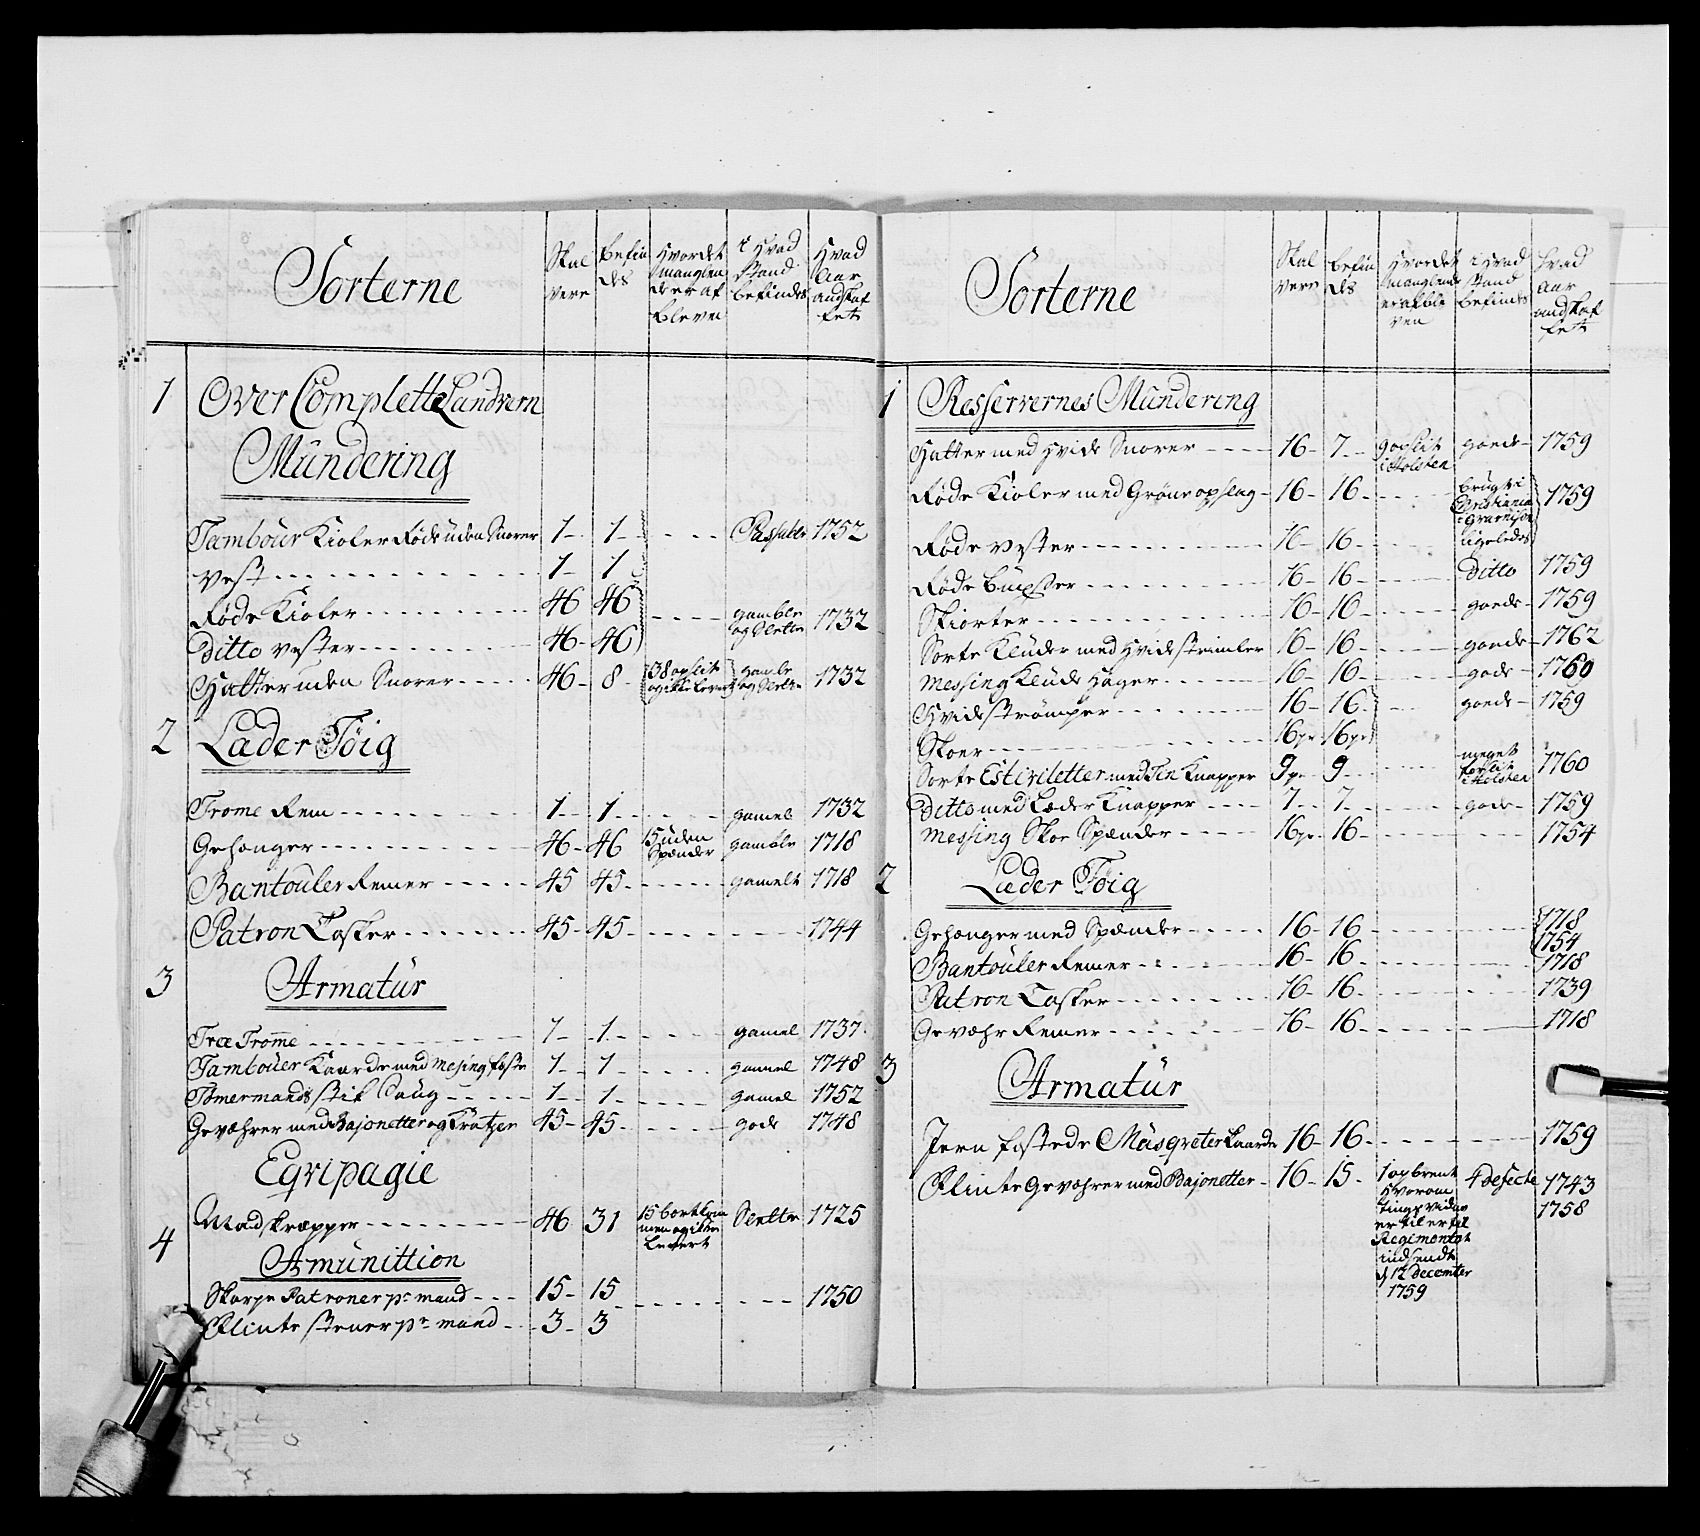 Sorterne | Skal være | befindes | hvordet manglende er af bleven | i hvad stand befindes | hvad Aar andskaffet
1 Over Complette Landvern
Mündering
Tambour Kioler Røde uden Snorer 1 1 Passable 1752
Vest 1 1
Røde Kioler 46 46 gamble og Slette 1732
Ditto vester 46 46
Hatter uden Snorer 46 8 38 opslit og ikke levert gamle og Slette 1732
2 Læder Töig
Trome Rem 1 1 gamel 1732
Gehænger 46 46 15 uden Spænder gamble 1718
Bantouler Remer 45 45 gamelt 1718
Patron Tasker 45 45 1744
3 Armatür
Træ Trome 1 1 gamel 1737
Tambouer Kaarde med Mesing fæste 1 1 gamel 1748
Tömermands stik Saug 1 1 gamel 1752
Gevæhrer med Bajonetter og Krätzer 45 45 gode 1748
Eqvipagie
Mad skræpper 46 31 15 bortkommen og ikke levert Slette 1725
4 Amunittion
Skarpe Patroner pr mand 15 15 1750
Flinte stener pr mand 3 3
Sorterne | Skal være | befindes | hvordet manglende er af bleven | i hvad stand befindes | hvad Aar andskaffet
1 Resservernes Mündering
Hatter med hvide Snorer 16 7 9 opslit i Holsten goede 1759
Røde Kioler med Grøne opslag 16 16 brugt i Christiania Gvarnison 1759
Røde vester 16 16 ligeledes
Røde büxser 16 16 ditto 1759
Skiorter 16 16 goede 1759
Sorte Klüder med hvide strimler 16 16 goede 1762
Messing Klude Hager 16 16 gode 1760
Hvide strömper 16 16 goede 1759
Skoer 16 pr 16 pr
Sorte Estiviletter med Tin Knapper 9 pr 9 meget forslit i Holsten 1760
Ditto med Læder Knapper 7 7 gode 1759
Messing Skoe Spænder 16 pr 16 1754
2 Læder Töig
Gehænger med Spænder 16 16 1718 1754
Bantouler Remer 16 16 1718
Patron Tasker 16 16 1739
Gevæhr Remer 16 16 1718
3 Armatür
Jern fæstede Müsqveter Kaarde 16 16 1759
Flinte Gevæhrer med Bajonetter 16 15 1 opbrent hvorom tings vidne er til Regimentet indsendt d 12 december 1759 4 defecte 1743 1758